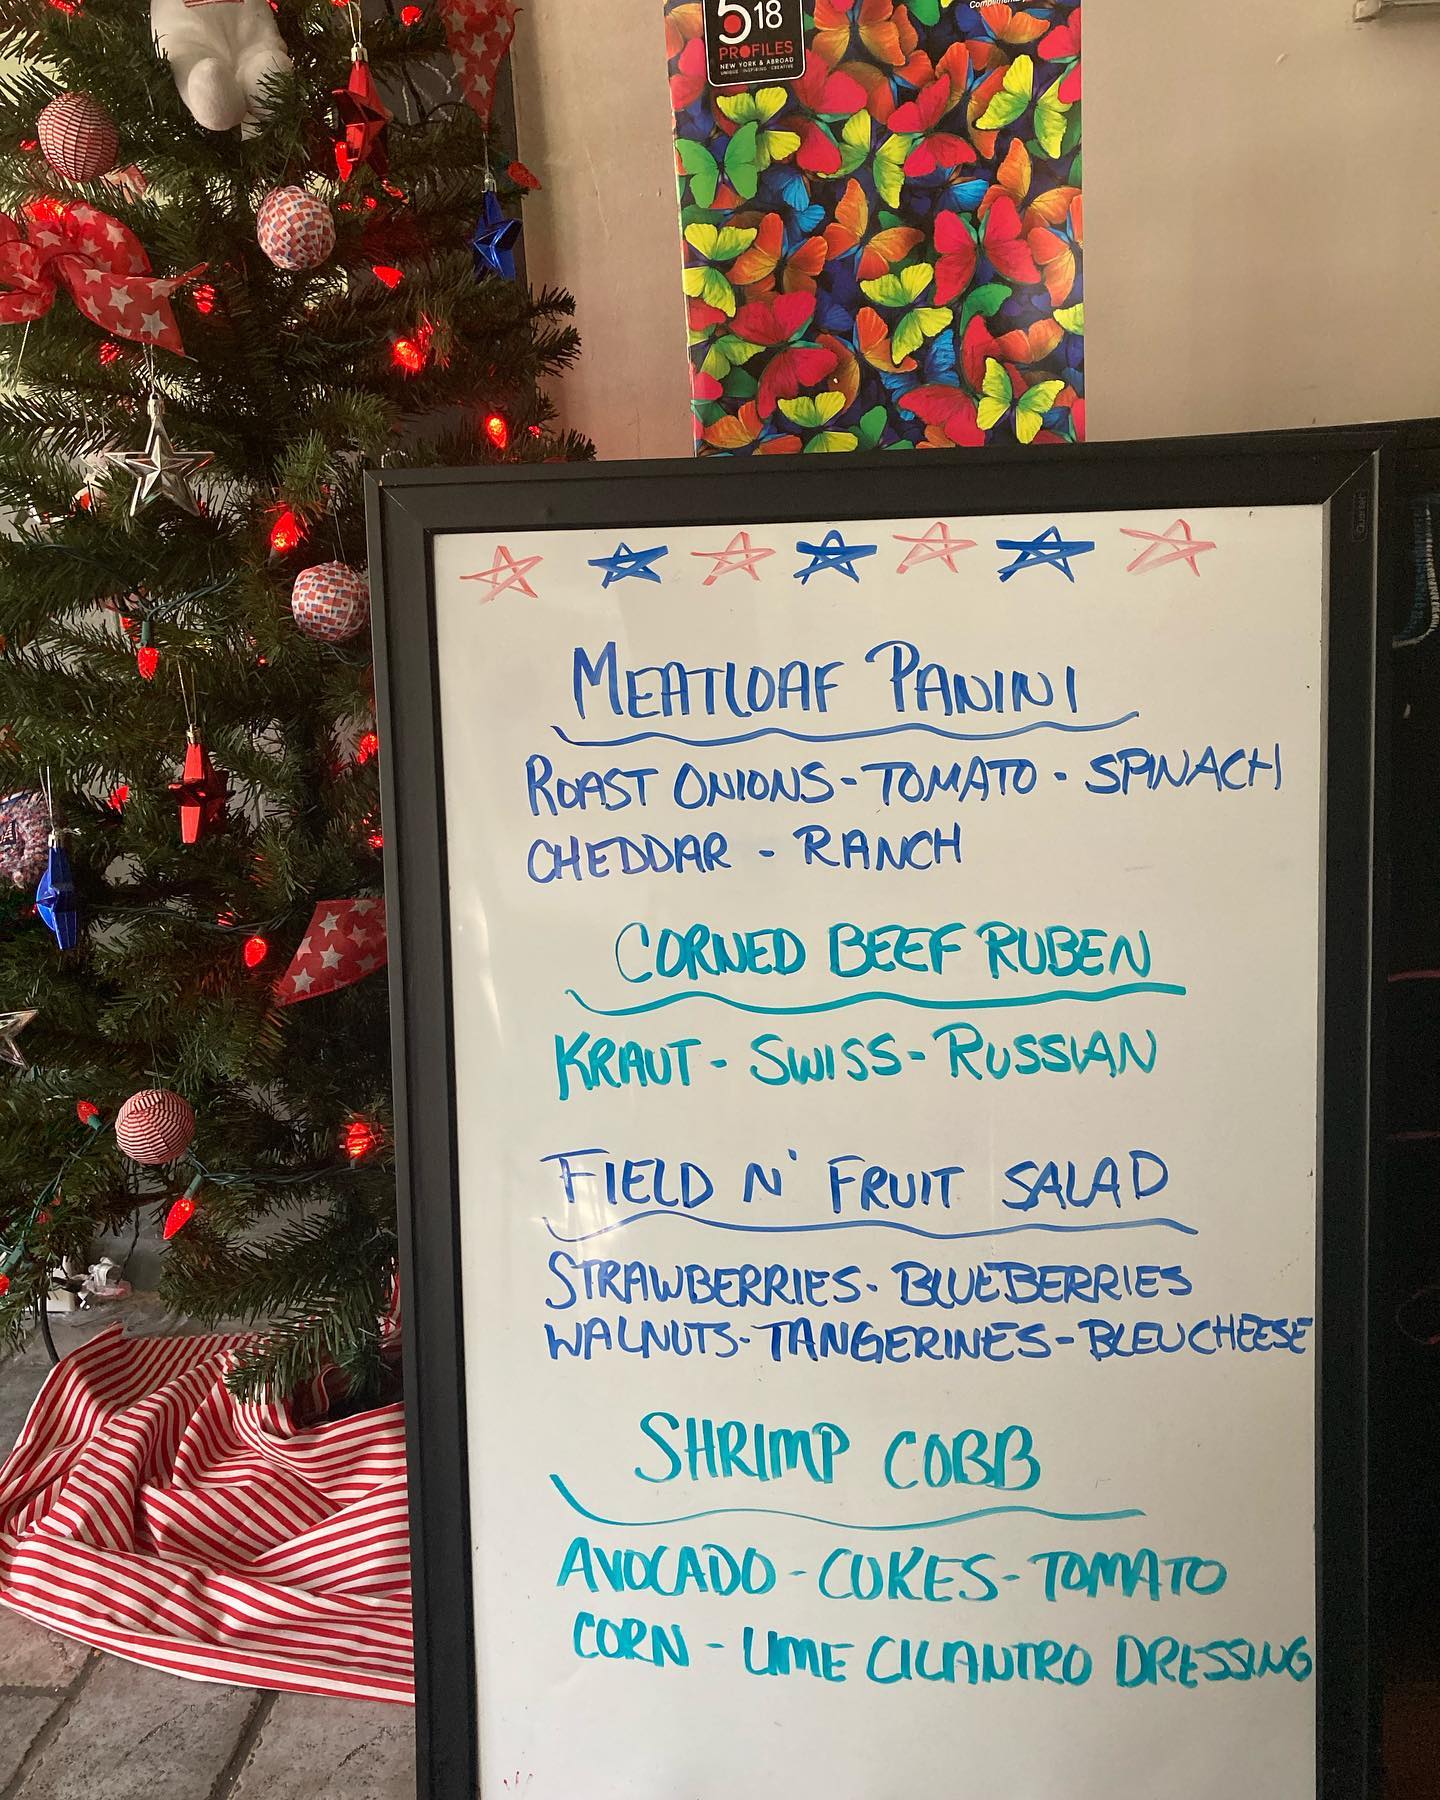 518
PROFILES
NEW YORK & ABROAD
UNIQUE INSPIRING CREATIVE
MEATLOAF PANINI
ROAST ONIONS - TOMATO - SPINACH
CHEDDAR - RANCH
CORNED BEEF RUBEN
KRAUT - SWISS - RUSSIAN
FIELD N' FRUIT SALAD
STRAWBERRIES - BLUEBERRIES
WALNUTS - TANGERINES - BLEU CHEESE
SHRIMP COBB
AVOCADO - CUKES - TOMATO
CORN - LIME CILANTRO DRESSING
Quartet